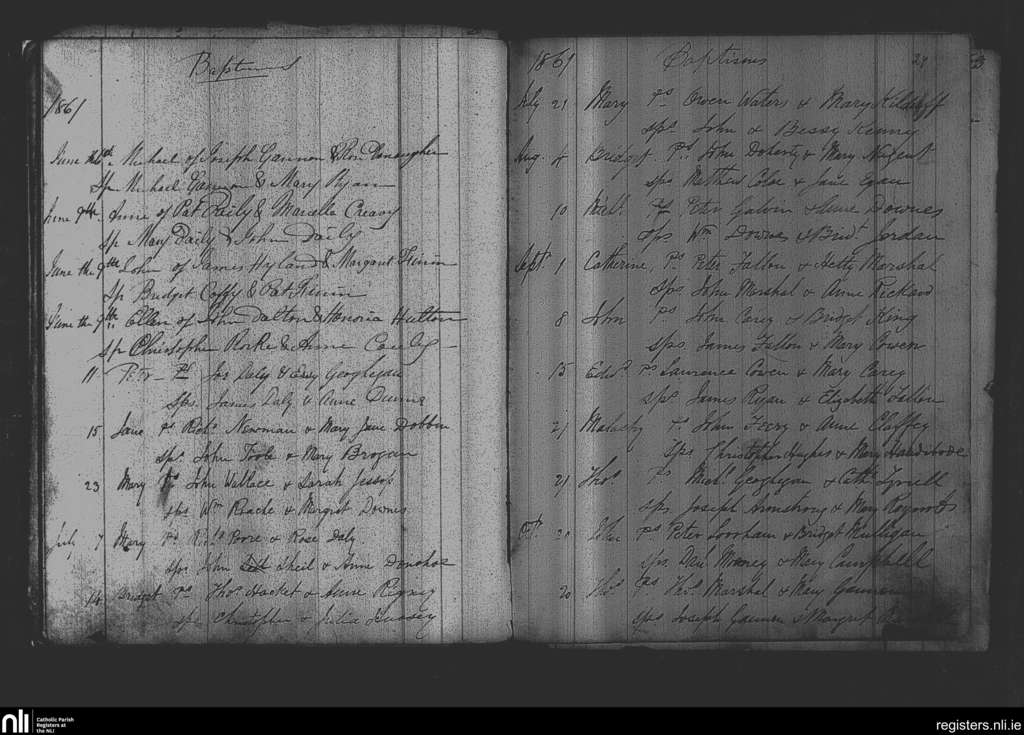 Baptisms
1861
June the Michael of Joseph Gannon &
Sp Michael Gannon & Mary Ryan
June 9th. Anne of Pat Daily & Marcella Creavy
Sp Mary Daily & John Daily
June the 9th John of James Hyland & Margaret
Sp Bridget Coffy & Pat
June the 9th Ellen of John Dalton & Honoria Hutton
Sp Christopher Rorke & Anne
11 Peter Ps Jos Daly & Geoghegan
Sps. James Daly & Anne Dunne
15 Jane Ps Richd Newman & Mary Jane Dobbin
Sps. John Toole & Mary Brogan
23 Mary Ps John Wallace & Sarah Jessop
Sps Wm Roache & Margret Downes
July 7 Mary Ps & Rose Daly
Sps John Sheil & Anne Donohoe
14 Bridget Ps Thos Hacket & Anne
Sps Christopher & Julia Hussey
1861 Baptisms
July 21 Mary Ps Owen Waters & Mary Kilduff
Sps. John & Bessy Kenny
Aug. 4 Bridget Ps John Doherty & Mary Nugent
Sps Mathew & Jane Egan
10 Michl. Ps Peter Galvin & Anne Downes
Sps Wm Downes & Bridt Jordan
Sept. 1 Catherine, Ps Peter Fallon & Hetty Marshal
Sps John Marshal & Anne Rickard
8 John Ps John Carey & Bridget King
Sps. James Fallon & Mary Cowen
15 Edwd Ps Laurence Cowen & Mary Carey
Sps James Ryan & Elizabeth Fallon
21 Malachy Ps John Feery & Anne Claffey
Sps Christopher Hughes & Mary
21 Thos Ps Michl Geoghegan & Cath Tyrrell
Sps Joseph Armstrong & Mary
Oct. 20 John Ps Peter & Bridget Mulligan
Sps. Danl Mooney & Mary Campbell
20 Thos Ps Thos. Marshal & Mary Gannon
Sps Joseph Gannon & Margret
nli
Catholic Parish
Registers at
the NLI
registers.nli.ie